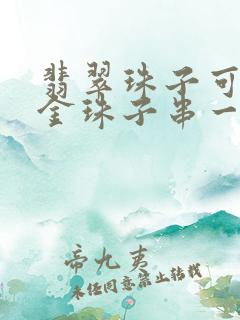 翡翠珠子可
金珠子串一
帝九夷
未经同意禁止转载